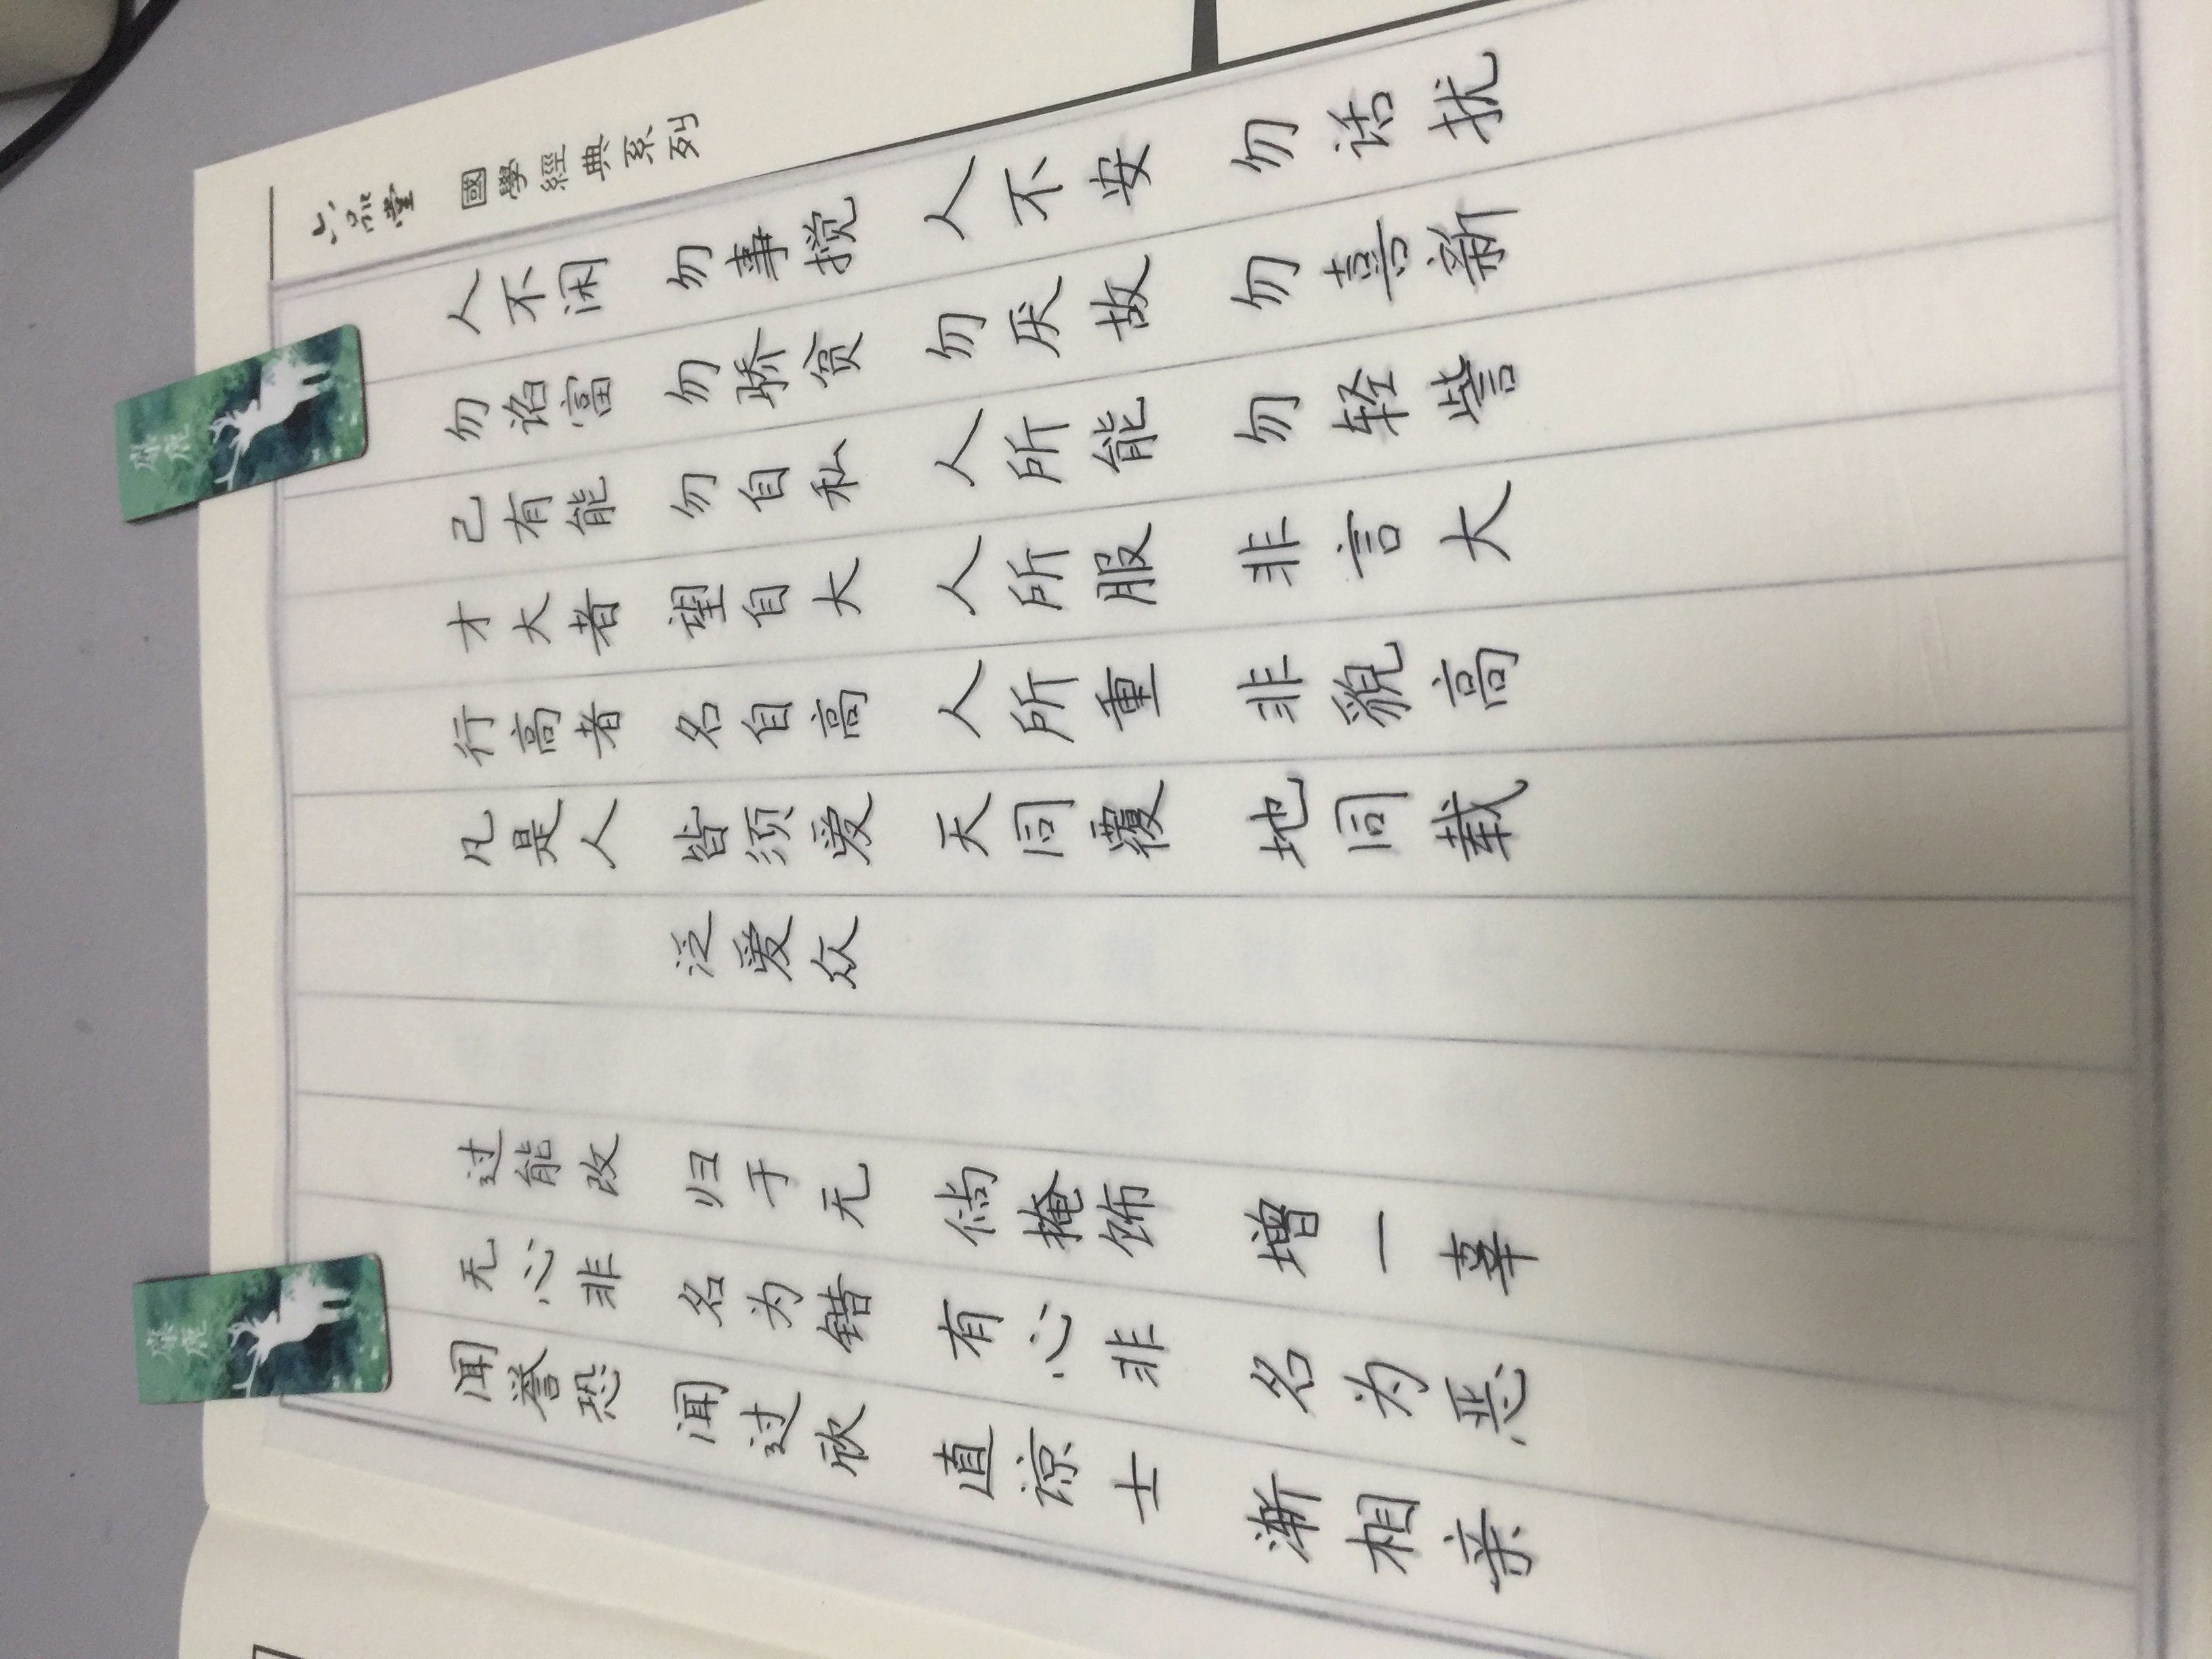 六品堂 國學經典系列
人不闲 勿事搅 人不安 勿话扰
勿谄富 勿骄贫 勿厌故 勿喜新
己有能 勿自私 人所能 勿轻訾
才大者 望自大 人所服 非言大
行高者 名自高 人所重 非貌高
凡是人 皆须爱 天同覆 地同载
泛爱众
过能改 归于无 倘掩饰 增一辜
无心非 名为错 有心非 名为恶
闻誉恐 闻过欣 直谅士 渐相亲
麋鹿
麋鹿